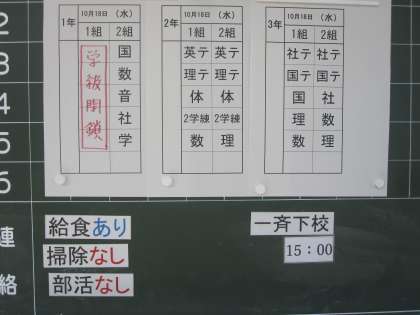 2
3
4
5
6
連
絡
1年
10月18日 （水）
1組 2組
学級閉鎖
国
数
音
社
学
2年
10月18日 （水）
1組 2組
英テ 英テ
理テ 理テ
体 体
2学練 2学練
数 理
3年
10月18日 （水）
1組 2組
社テ 社テ
国テ 国テ
国 社
理 数
数 理
給食あり
掃除なし
部活なし
一斉下校
15：00